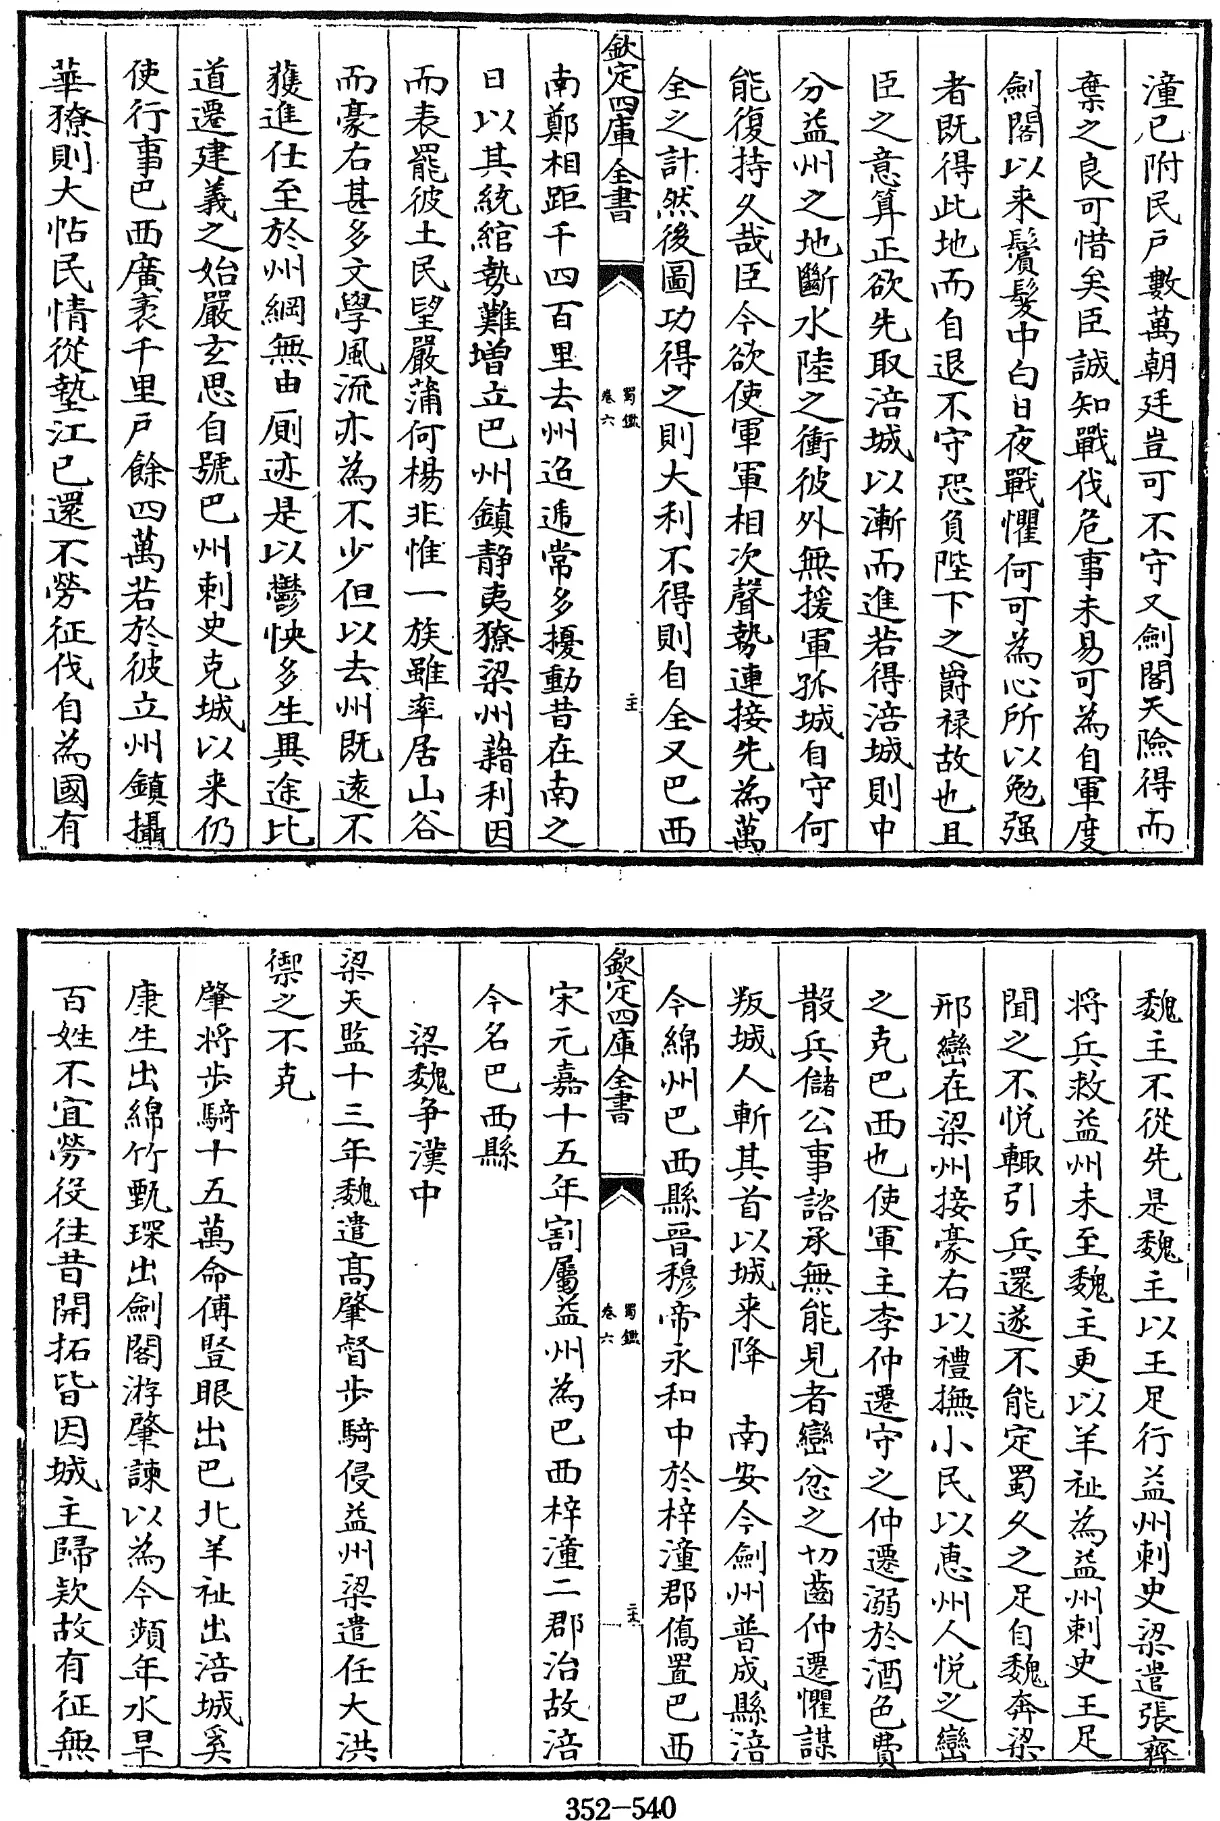 潼已附民户數萬朝廷豈可不守又劍閣天險得而
棄之良可惜矣臣誠知戰伐危事未易可為自軍度
劍閣以来鬢髮中白日夜戰懼何可為心所以勉强
者既得此地而自退不守恐負陛下之爵禄故也且
臣之意算正欲先取涪城以漸而進若得涪城則中
分益州之地斷水陸之衝彼外無援軍孤城自守何
能復持久哉臣今欲使軍軍相次聲勢連接先為萬
全之計然後圖功得之則大利不得則自全又巴西
欽定四庫全書
蜀鑑
卷六
南鄭相距千四百里去州迢遞常多擾動昔在南之
日以其統綰勢難増立巴州鎮静夷獠梁州藉利因
而表罷彼土民望嚴蒲何楊非惟一族雖率居山谷
而豪右甚多文學風流亦為不少但以去州既逺不
獲進仕至於州綱無由厠迹是以鬱怏多生異途比
道遷建義之始嚴玄思自號巴州刺史克城以来仍
使行事巴西廣袤千里户餘四萬若於彼立州鎮攝
華獠則大帖民情從墊江已還不勞征伐自為國有
魏主不從先是魏主以王足行益州刺史梁遣張齊
将兵救益州未至魏主更以羊祉為益州刺史王足
聞之不悦輙引兵還遂不能定蜀久之足自魏奔梁
邢巒在梁州接豪右以禮撫小民以恵州人悦之巒
之克巴西也使軍主李仲遷守之仲遷溺於酒色費
散兵儲公事諮承無能見者巒忿之切齒仲遷懼謀
叛城人斬其首以城来降　南安今劍州普成縣涪
今綿州巴西縣晉穆帝永和中於梓潼郡僑置巴西
欽定四庫全書
蜀鑑
卷六
宋元嘉十五年割屬益州為巴西梓潼二郡治故涪
今名巴西縣
梁魏争漢中
梁天監十三年魏遣髙肇督步騎侵益州梁遣任大洪
禦之不克
肇将步騎十五萬命傅豎眼出巴北羊祉出涪城奚
康生出綿竹甄琛出劍閣游肇諫以為今頻年水旱
百姓不宜勞役往昔開拓皆因城主歸欵故有征無
352-540